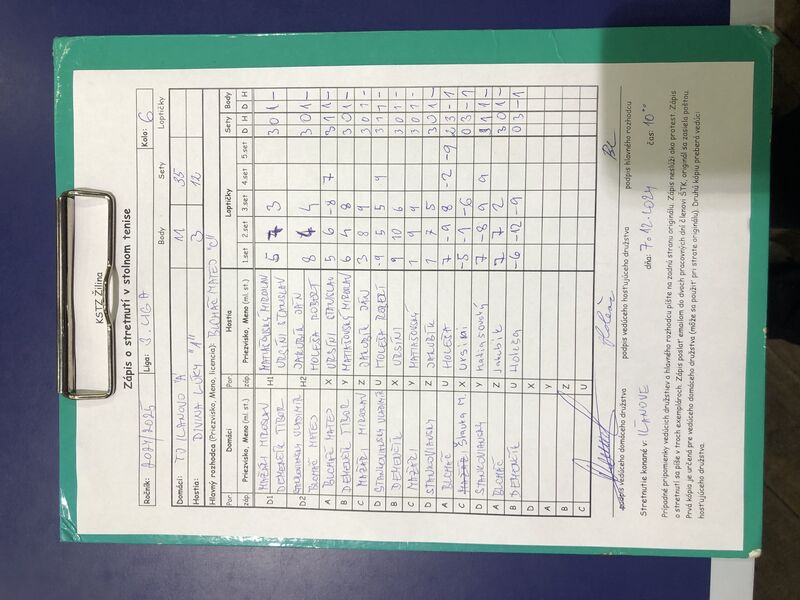 KSTZ Žilina
Zápis o stretnutí v stolnom tenise
Ročník: 2024/2025 Liga: 5. LIGA Kolo: 6
Body Sety Loptičky
Domáci: TJ ILANOVO "A" 11 35
Hostia: DIVINA LÚKY "1" 3 12
Hlavný rozhodca (Priezvisko, Meno, licencia): BLCHÁČ MATEJ "C"
Por. Domáci Por. Hostia Loptičky Sety Body
záp. Priezvisko, Meno (ml. st.) záp. Priezvisko, Meno (ml. st.) 1.set 2.set 3.set 4.set 5.set D H D H
D1 MAZÁRI MIROSLAV H1 MATIAŠOVSKÝ MIROSLAV 5 7 3 3 0 1 -
DEMENČÍK TIBOR URSÍNI STANISLAV
D2 VLADIMÍR H2 JAKUBÍK JÁN 8 4 4 3 0 1 -
BLCHÁČ MATEJ HOLEŠA ROBERT
A BLCHÁČ MATEJ X URSÍNI STANISLAV 5 6 -8 7 3 1 1 -
B DEMENČÍK TIBOR Y MATIAŠOVSKÝ MIROSLAV 6 4 8 3 0 1 -
C MAZÁRI MIROSLAV Z JAKUBÍK JÁN 3 8 9 3 0 1 -
D STANKOVIANSKY VLADIMÍR U HOLEŠA ROBERT -9 5 5 9 3 1 1 -
B DEMENČÍK X URSÍNI 9 10 6 3 0 1 -
C MAZÁRI Y MATIAŠOVSKÝ 1 9 9 3 0 1 -
D STANKOVIANSKY Z JAKUBÍK 1 7 5 3 0 1 -
A BLCHÁČ U HOLEŠA 7 -9 8 -2 -9 2 3 - 1
C M. X Ursíni -5 -1 -6 0 3 - 1
D STANKOVIANSKY Y Matiašovský 7 -8 9 9 3 1 1 -
A BLCHÁČ Z Jakubík 7 7 2 3 0 1 -
B DEMENČÍK U Holeša -6 -12 -9 0 3 - 1
D X
A Y
B Z
C U
podpis vedúceho domáceho družstva podpis vedúceho hosťujúceho družstva podpis hlavného rozhodcu
Stretnutie konané v: ILANOVE dňa: 7.12.2024 čas: 10⁰⁰
Prípadné pripomienky vedúcich družstiev a hlavného rozhodcu píšte na zadnú stranu originálu. Zápis neslúži ako protest. Zápis
o stretnutí sa píše v troch exemplároch. Zápis poslať emailom do dvoch pracovných dní členovi ŠTK, originál sa zasiela poštou.
Prvá kópia je určená pre vedúceho domáceho družstva (môže sa použiť pri strate originálu). Druhú kópiu preberá vedúci
hosťujúceho družstva.